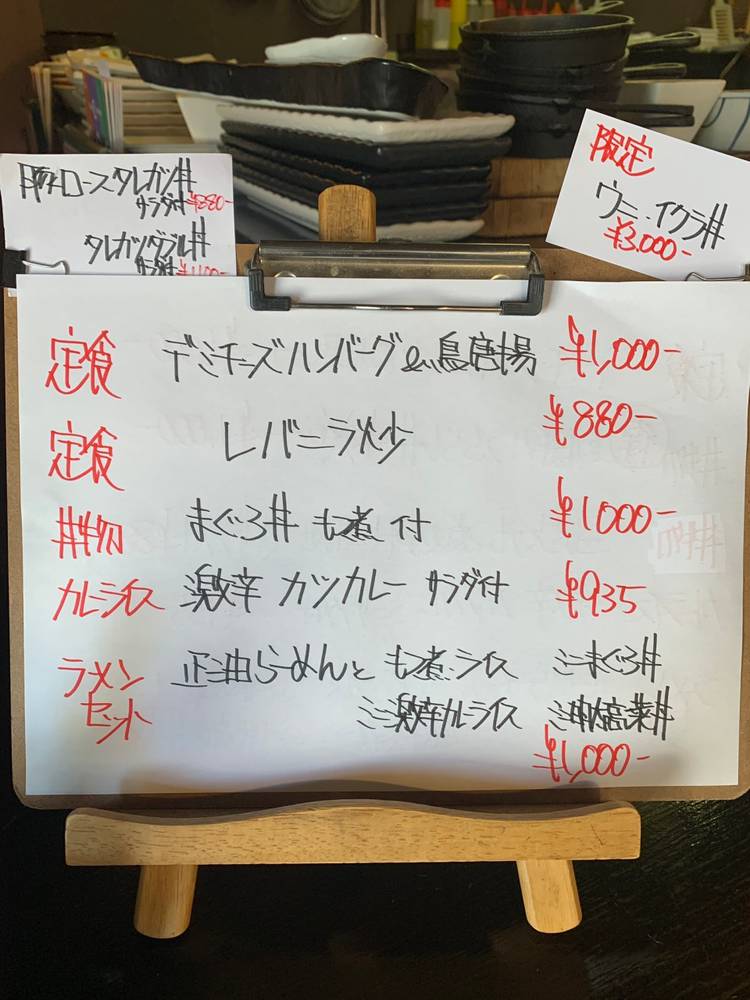 豚ロースタレカツ丼
サラダ付 ¥880-
タレカツダブル丼
サラダ付 ¥1,100-
限定
ウニ・イクラ丼
¥3,000-
定食 デミチーズハンバーグ&鳥唐揚 ¥1,000-
定食 レバニラ炒 ¥880-
丼物 まぐろ丼 もつ煮付 ¥1000-
カレーライス 激辛 カツカレー サラダ付 ¥935
ラーメンセット 正油らーめんと もつ煮・ライス ミニまぐろ丼
ミニ激辛カレーライス ミニ高菜丼
¥1,000-